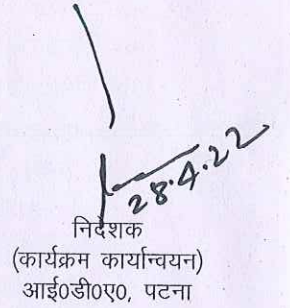 28.4.22
निदेशक
(कार्यक्रम कार्यान्वयन)
आई0डी0ए0, पटना